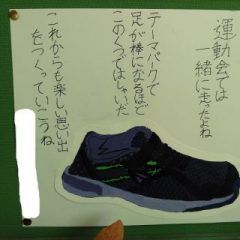 運動会では
一緒に走ったよね
テーマパークで
足が棒になるほど
このくつではしゃいだ
これからも楽しい思い出
をつくっていこうね